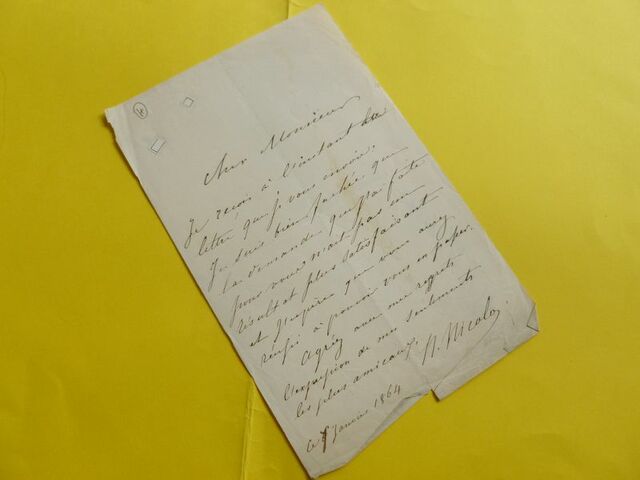 4
Cher Monsieur
Je reçois à l'instant la
lettre que je vous envoie.
Je suis bien fâchée que
la demande que j'ai faite
pour vous n'ait pas un
résultat plus satisfaisant
et j'espère que vous aurez
réussi à pouvoir vous en passer.
Agréez avec mes regrets
l'expression de mes sentiments
les plus amicaux.
N. Nicolo
Ce janvier 1864